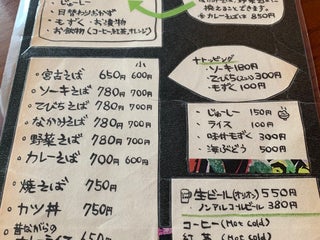 ・じゅーしー
・日替わりおかず
・もずく・お漬物
・お飲物(コーヒー,紅茶,オレンジ)
換えできます。
※カレーそばは850円
小
・宮古そば 650円 600円
・ソーキそば 780円 700円
・てびちそば 780円 700円
・なかみそば 780円 700円
・野菜そば 780円 700円
・カレーそば 700円 600円
・焼そば 750円
・カツ丼 750円
昔ながらの
オムライス
+トッピング
・ソーキ 180円
・てびち 300円
・もずく 100円
・じゅーしー 150円
・ライス 100円
・味付もずく 300円
・海ぶどう 500円
生ビール(オリオン) 550円
ノンアルコールビール 380円
コーヒー (Hot cold)
紅茶 (Hot cold)